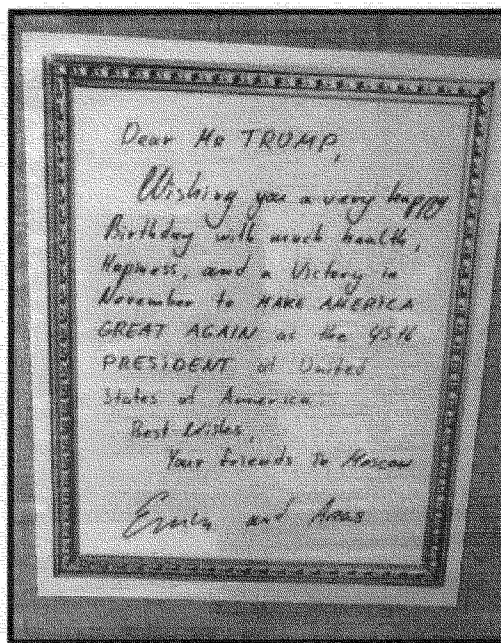 Dear Mr TRUMP,
Wishing you a very happy
Birthday with much health,
Hapiness, and a Victory in
November to MAKE AMERICA
GREAT AGAIN as the 45th
PRESIDENT of United
States of America
Best Wishes,
Your friends in Moscow
and Aras